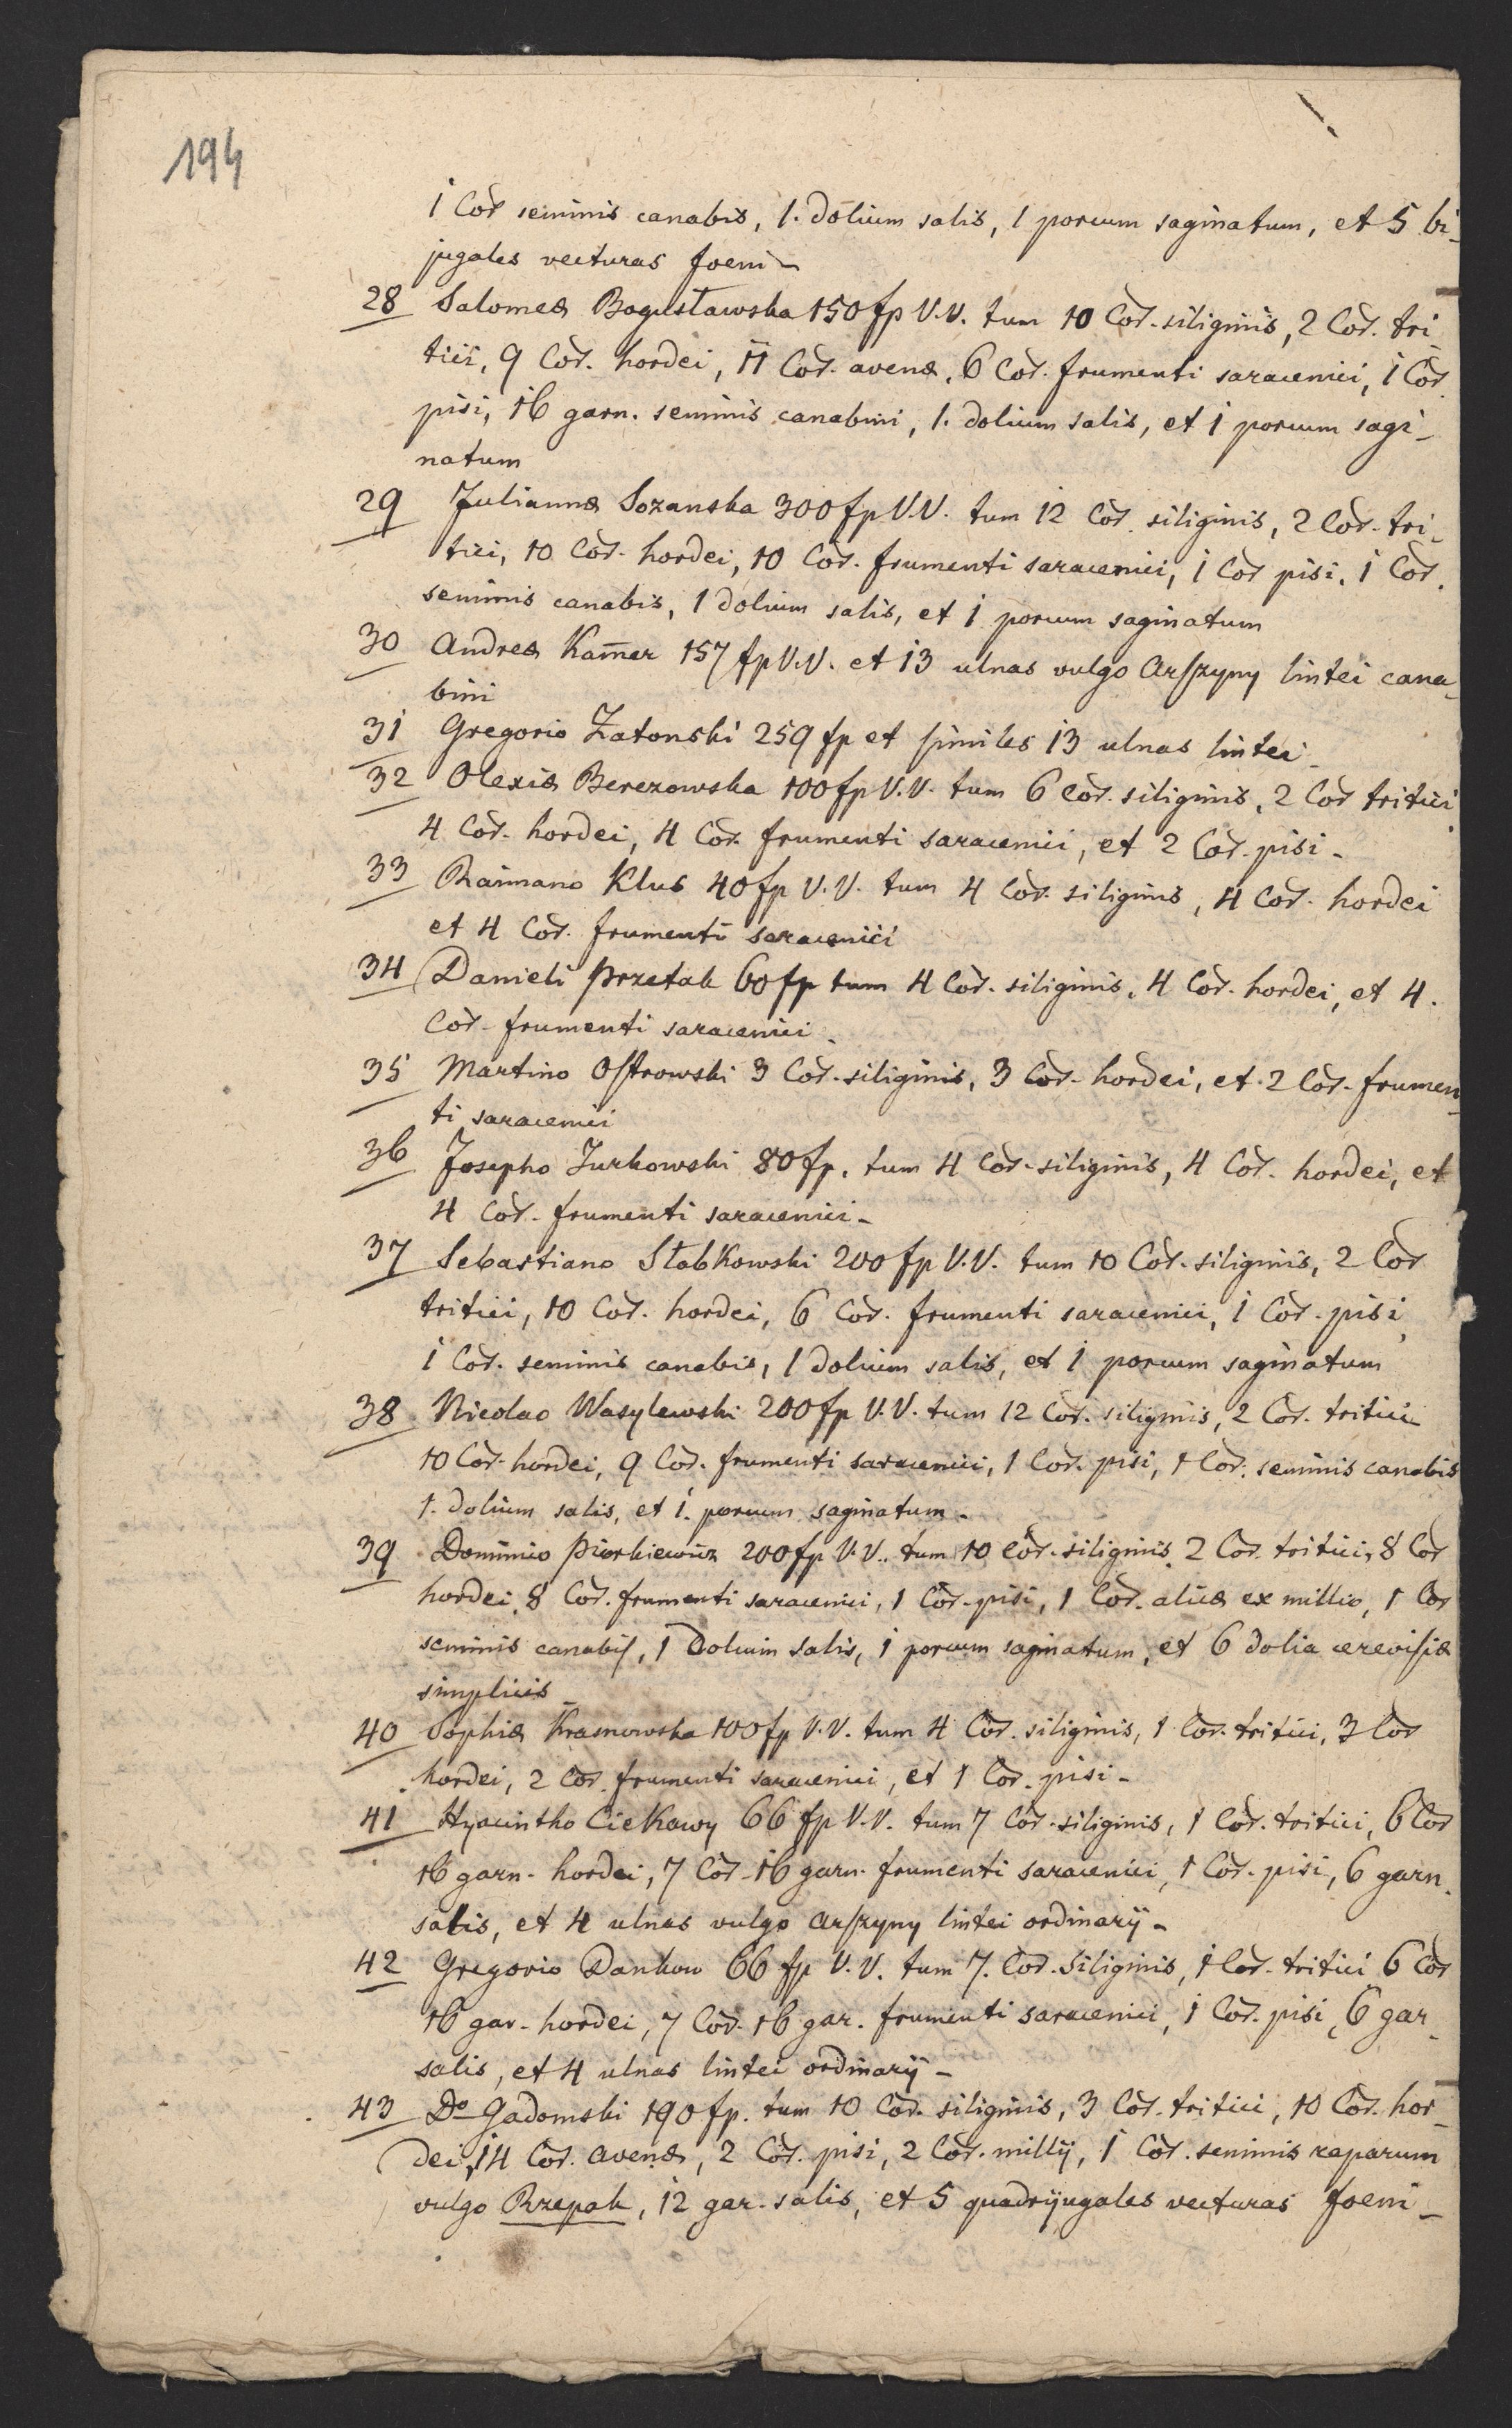 194
1 Cor seminis canabis, 1. dolium salis, 1 porcum saginatum, et 5 bi-
jugales vecturas foeni -
28 Salomeæ Bogusławska 150 fp V.V. tum 10 Cor. siliginis, 2 Cor. tri
tici, 9 Cor. hordei, 11 Cor. avenæ, 6 Cor. frumenti saracenici, 1 Cor
pisi, 16 garn. seminis canabini, 1. dolium salis, et 1 porcum sagi-
natum
29 Juliannæ Sozanska 300 fp V.V. tum 12 Cor. siliginis, 2 Cor. tri-
tici, 10 Cor. hordei, 10 Cor. frumenti saracenici, 1 Cor pisi, 1 Cor.
seminis canabis, 1 dolium salis, et 1 porcum saginatum
30 Andreæ Kam̄er 157 fp V.V. et 13 ulnas vulgo Arszyny lintei cana-
bini
31 Gregorio Zatonski 259 fp et similes 13 ulnas lintei -
32 Olexiæ Berezowska 100 fp V.V. tum 6 Cor. siliginis, 2 Cor tritici
4 Cor. hordei, 4 Cor. frumenti saracenici, et 2 Cor. pisi -
33 Raimano Klus 40 fp V.V. tum 4 Cor. siliginis, 4 Cor. hordei
et 4 Cor. frumenti saracenici
34 Danieli Przetak 60 fp tum 4 Cor. siliginis, 4 Cor. hordei, et 4.
Cor. frumenti saracenici.
35 Martino Ostrowski 3 Cor. siliginis, 3 Cor. hordei, et 2 Cor. frumen-
ti saracenici
36 Josepho Jurkowski 80 fp. tum 4 Cor. siliginis, 4 Cor. hordei, et
4 Cor. frumenti saracenici -
37 Sebastiano Słabkowski 200 fp V.V. tum 10 Cor. siliginis, 2 Cor
tritici, 10 Cor. hordei, 6 Cor. frumenti saracenici, 1 Cor. pisi,
1 Cor. seminis canabis, 1 dolium salis, et 1 porcum saginatum
38 Nicolao Wasylewski 200 fp V.V. tum 12 Cor. siliginis, 2 Cor. tritici
10 Cor. hordei, 9 Cor. frumenti saracenici, 1 Cor. pisi, 1 Cor. seminis canabis
1. dolium salis, et 1. porcum saginatum -
39 Dominico Piorkiewicz 200 fp V.V. tum 10 Cor. siliginis, 2 Cor. tritici, 8 Cor
hordei, 8 Cor. frumenti saracenici, 1 Cor. pisi, 1 Cor. alicæ ex millio, 1 Cor
seminis canabis, 1 Dolium salis, 1 porcum saginatum, et 6 dolia cerevisiæ
simplicis
40 Sophiæ Krasnowska 100 fp V.V. tum 4 Cor. siliginis, 1 Cor. tritici, 3 Cor
hordei, 2 Cor. frumenti saracenici, et 1 Cor. pisi -
41 Hyacintho Ciekawy 66 fp V.V. tum 7 Cor. siliginis, 1 Cor. tritici, 6 Cor
16 garn. hordei, 7 Cor. 16 garn. frumenti saracenici, 1 Cor. pisi, 6 garn.
salis, et 4 ulnas vulgo Arszyny lintei ordinarÿ -
42 Gregorio Dankow 66 fp V.V. tum 7. Cor. siliginis, 1 Cor. tritici 6 Cor
16 gar. hordei, 7 Cor. 16 gar. frumenti saracenici, 1 Cor. pisi, 6 gar.
salis, et 4 ulnas lintei ordinarÿ -
43 Do Gadomski 190 fp. tum 10 Cor. siliginis, 3 Cor. tritici, 10 Cor. hor-
dei, 14 Cor. avenæ, 2 Cor. pisi, 2 Cor. millÿ, 1 Cor. seminis raparum
vulgo Rzepak, 12 gar. salis, et 5 quadrijugales vecturas foeni -